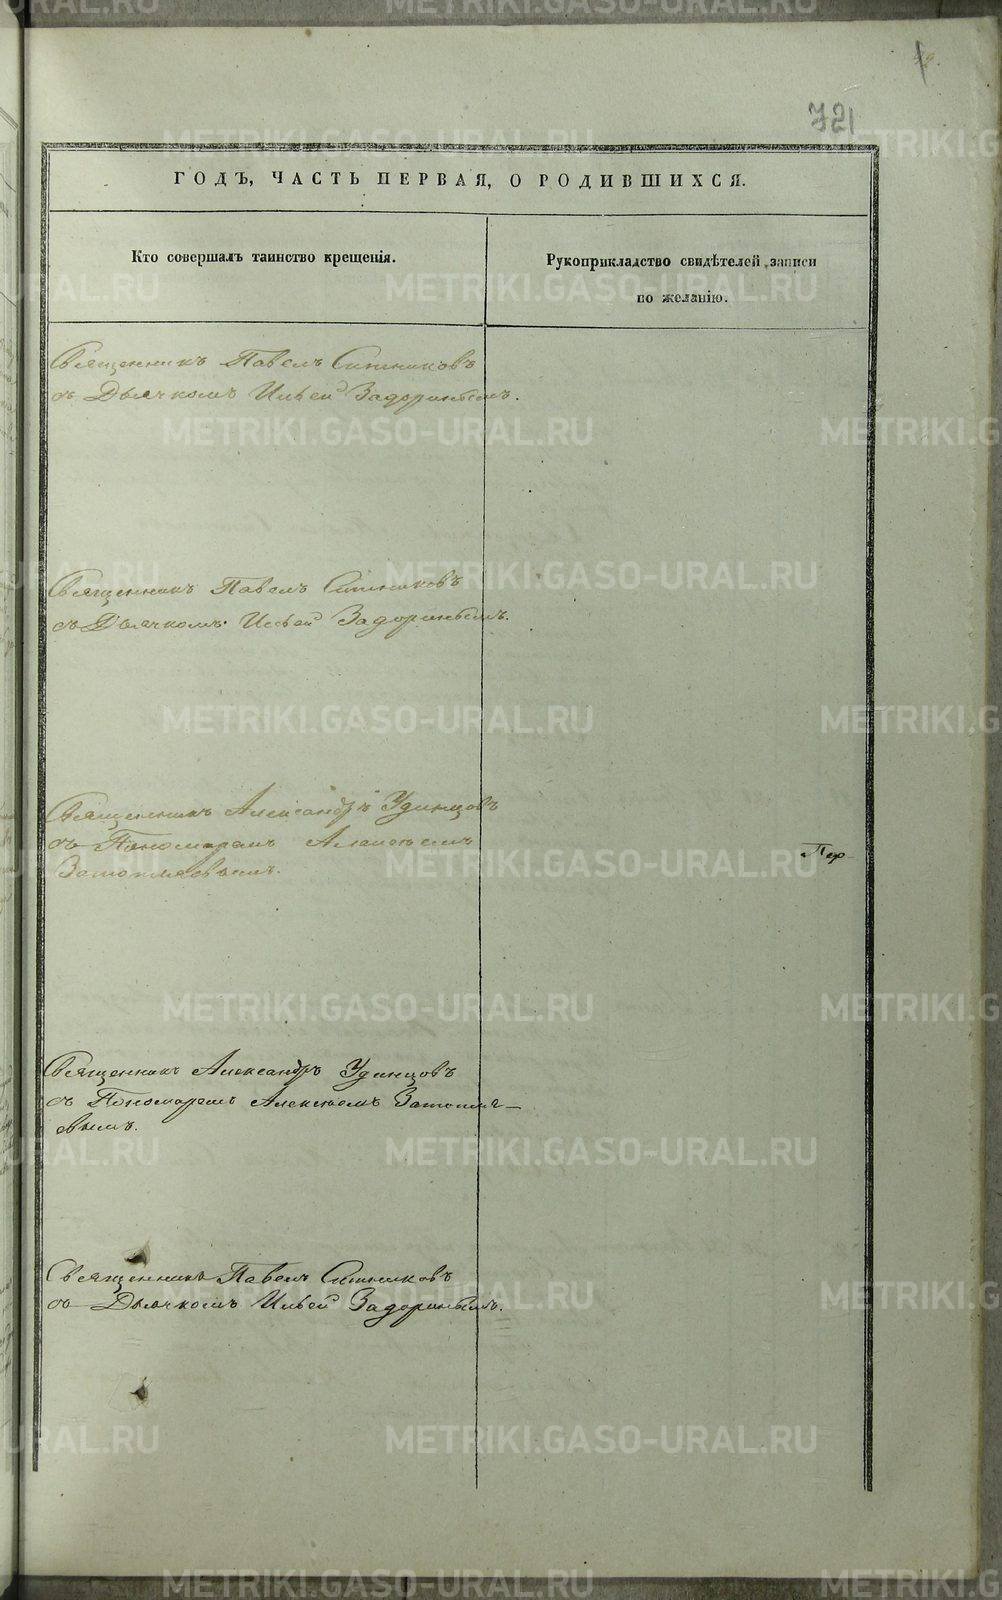 721
ГОДЪ, ЧАСТЬ ПЕРВАЯ, О РОДИВШИХСЯ.
Кто совершалъ таинство крещенія.
Рукоприкладство свидѣтелей записи
по желанію.
Священникъ Павелъ Ситниковъ
съ Дьячкомъ Ильей Задоринымъ.
Священникъ Павелъ Ситниковъ
съ Дьячкомъ Ильей Задоринымъ.
Священникъ Александръ Удинцовъ
съ Пономаремъ Алексѣемъ
Затопляевымъ.
Пер
Священникъ Александръ Удинцовъ
съ Пономаремъ Алексѣемъ Затопля-
евымъ.
Священникъ Павелъ Ситниковъ
съ Дьячкомъ Ильей Задоринымъ.
METRIKI.GASO-URAL.RU